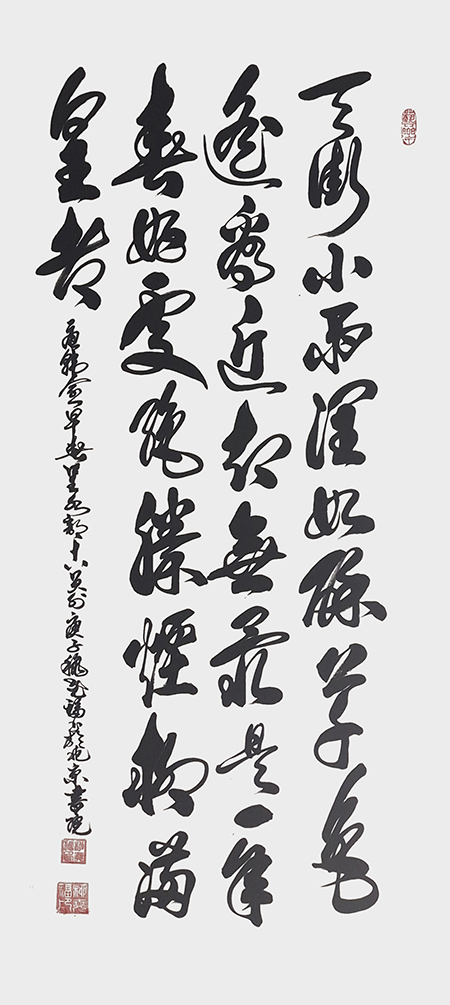 天街小雨潤如酥草色
遙看近却無最是一年
春好處絶勝煙柳滿
皇都
韓愈早春呈水部十八員外庚子秋 東書院